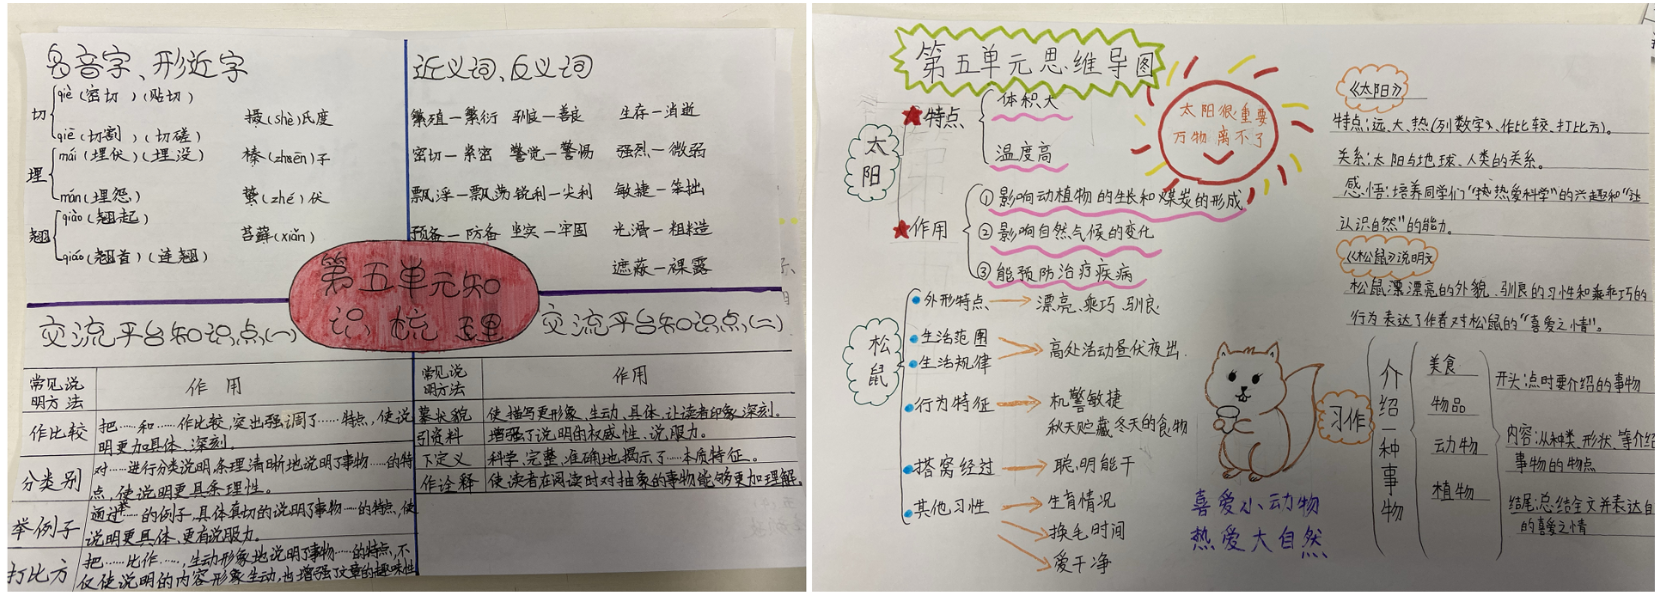 多音字、形近字
切
qiè(密切)(贴切)
qiē(切割)(切磋)
埋
mái(埋伏)(埋没)
mán(埋怨)
翘
qiào(翘起)
qiáo(翘首)(连翘)
摄(shè)氏度
榛(zhēn)子
蛰(zhé)伏
苔藓(xiǎn)
近义词、反义词
繁殖—繁衍 驯良—善良 生存—消逝
密切—紧密 警觉—警惕 强烈—微弱
飘浮—飘荡 锐利—尖利 敏捷—笨拙
预备—防备 坚实—牢固 光滑—粗糙
遮蔽—裸露
第五单元知
识梳理
交流平台知识点(一)
常见说明方法 作用
作比较 把……和……作比较,突出强调了……特点,使说
明更加具体、深刻.
分类别 对……进行分类说明,条理清晰地说明了事物……的特
点,使说明更具条理性。
举例子 通过举……的例子,具体真切的说明了事物……的特点,使
说明更具体,更有说服力。
打比方 把……比作……,生动形象地说明了事物……的特点,不
仅使说明的内容形象生动,也增强了文章的趣味性
交流平台知识点(二)
常见说明方法 作用
摹状貌 使描写更形象、生动、具体,让读者印象深刻。
引资料 增强了说明的权威性、说服力。
下定义 科学、完整、准确地揭示了……本质特征。
作诠释 使读者在阅读时对抽象的事物能够更加理解
第五单元思维导图
太阳
特点
体积大
温度高
作用
①影响动植物的生长和煤炭的形成
②影响自然气候的变化
③能预防治疗疾病
太阳很重要
万物离不了
松鼠
外形特点 漂亮、乖巧、驯良
生活范围
生活规律
高处活动昼伏夜出.
行为特征 机警敏捷
秋天贮藏冬天的食物
搭窝经过 聪明能干
其他习性 生育情况
换毛时间
爱干净
喜爱小动物
热爱大自然
《太阳》
特点:远、大、热(列数字、作比较、打比方)。
关系:太阳与地球、人类的关系。
感悟:培养同学们"热爱科学"的兴趣和"让
认识自然"的能力。
《松鼠》说明文
松鼠漂漂亮的外貌、驯良的习性和乖巧的
行为表达了作者对松鼠的"喜爱之情"。
习作
介绍一种事物
美食
物品
动物
植物
开头:点时要介绍的事物
内容:从种类、形状、等介绍
事物的物点
结尾:总结全文并表达自
的喜爱之情